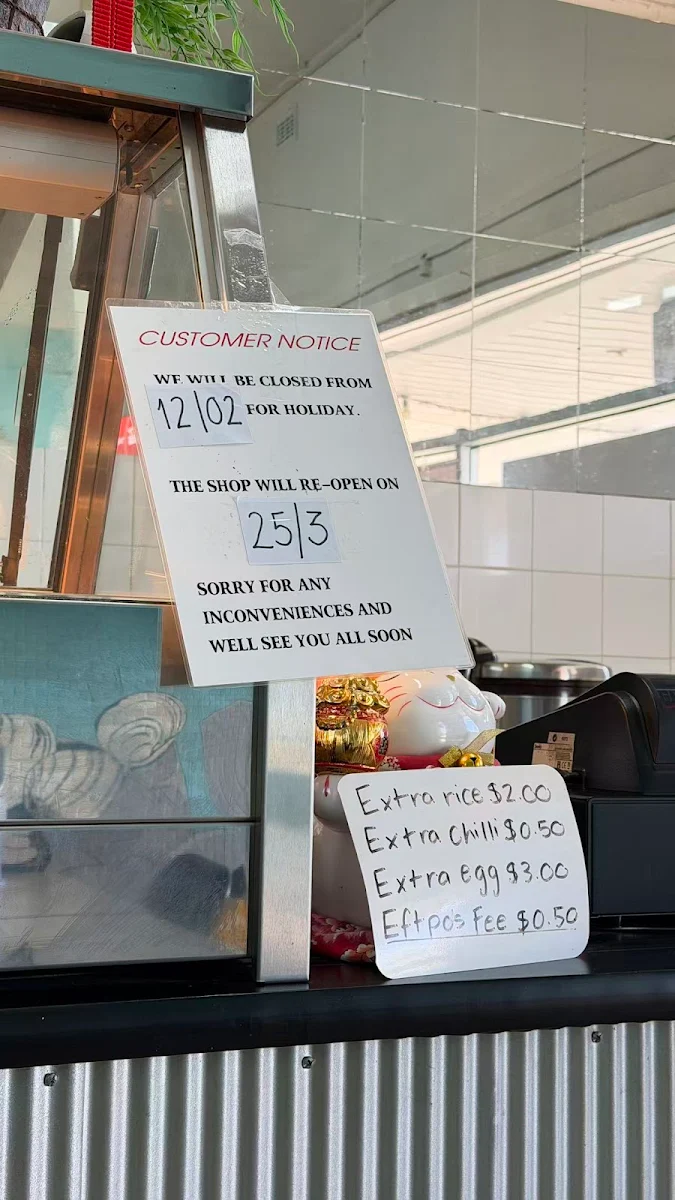 CUSTOMER NOTICE
WE WILL BE CLOSED FROM
12/02 FOR HOLIDAY.
THE SHOP WILL RE-OPEN ON
25/3
SORRY FOR ANY
INCONVENIENCES AND
WELL SEE YOU ALL SOON
Extra rice $2.00
Extra Chilli $0.50
Extra egg $3.00
Eftpos Fee $0.50